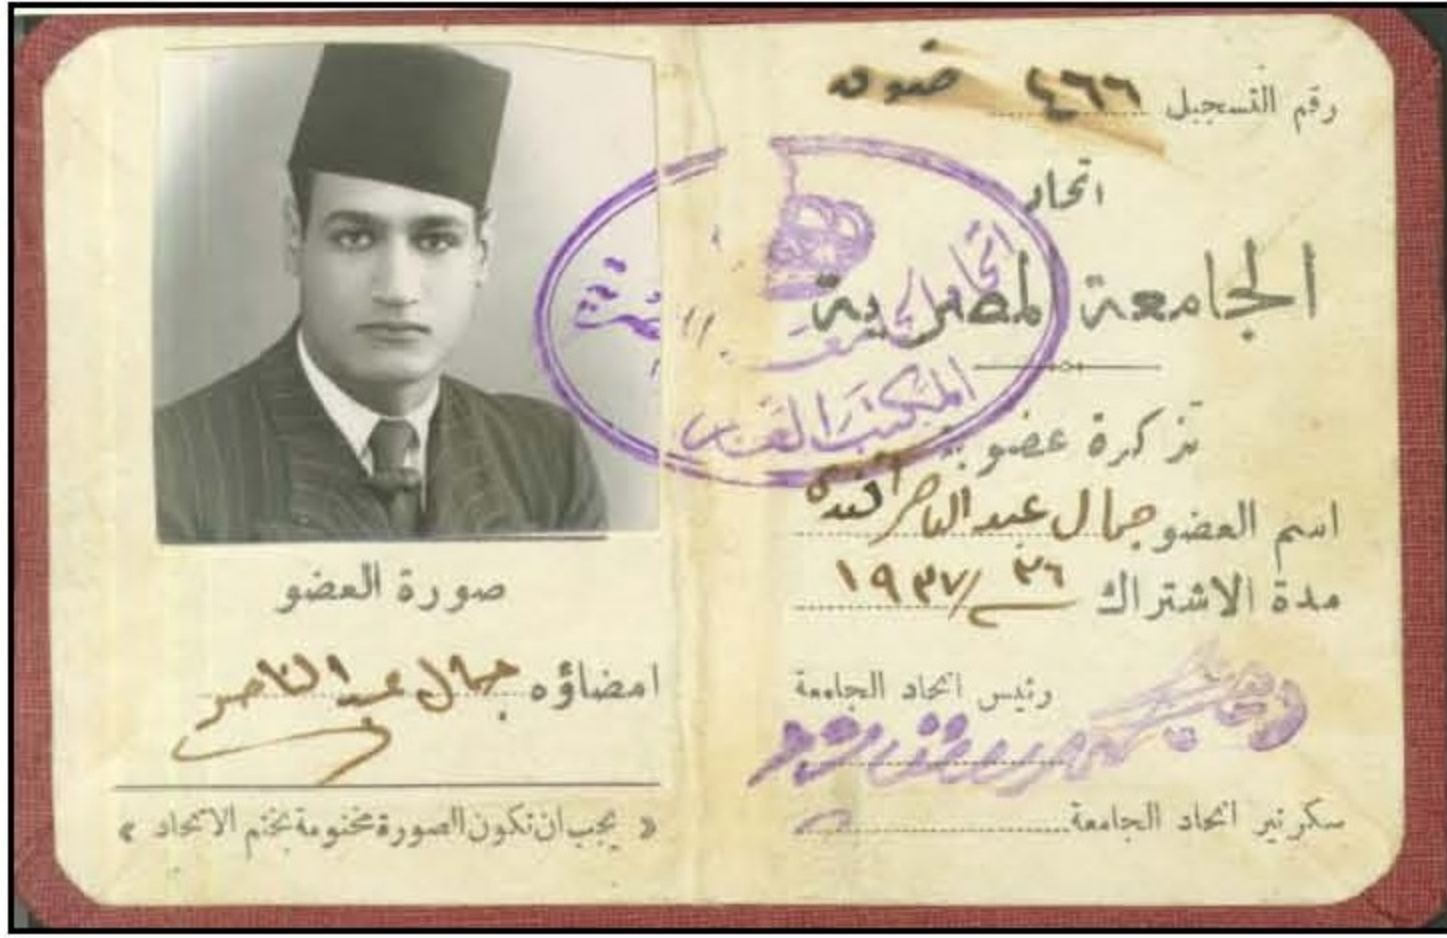 رقم التسجيل ٤٦٦ حقوق
اتحاد
الجامعة المصرية
تذكرة عضوية
اسم العضو جمال عبد الناصر افندى
مدة الاشتراك ٣٦ / ١٩٣٧
رئيس اتحاد الجامعة
سكرتير اتحاد الجامعة
المكتب
صورة العضو
امضاؤه جمال عبد الناصر
« يجب ان تكون الصورة مختومة بختم الاتحاد »